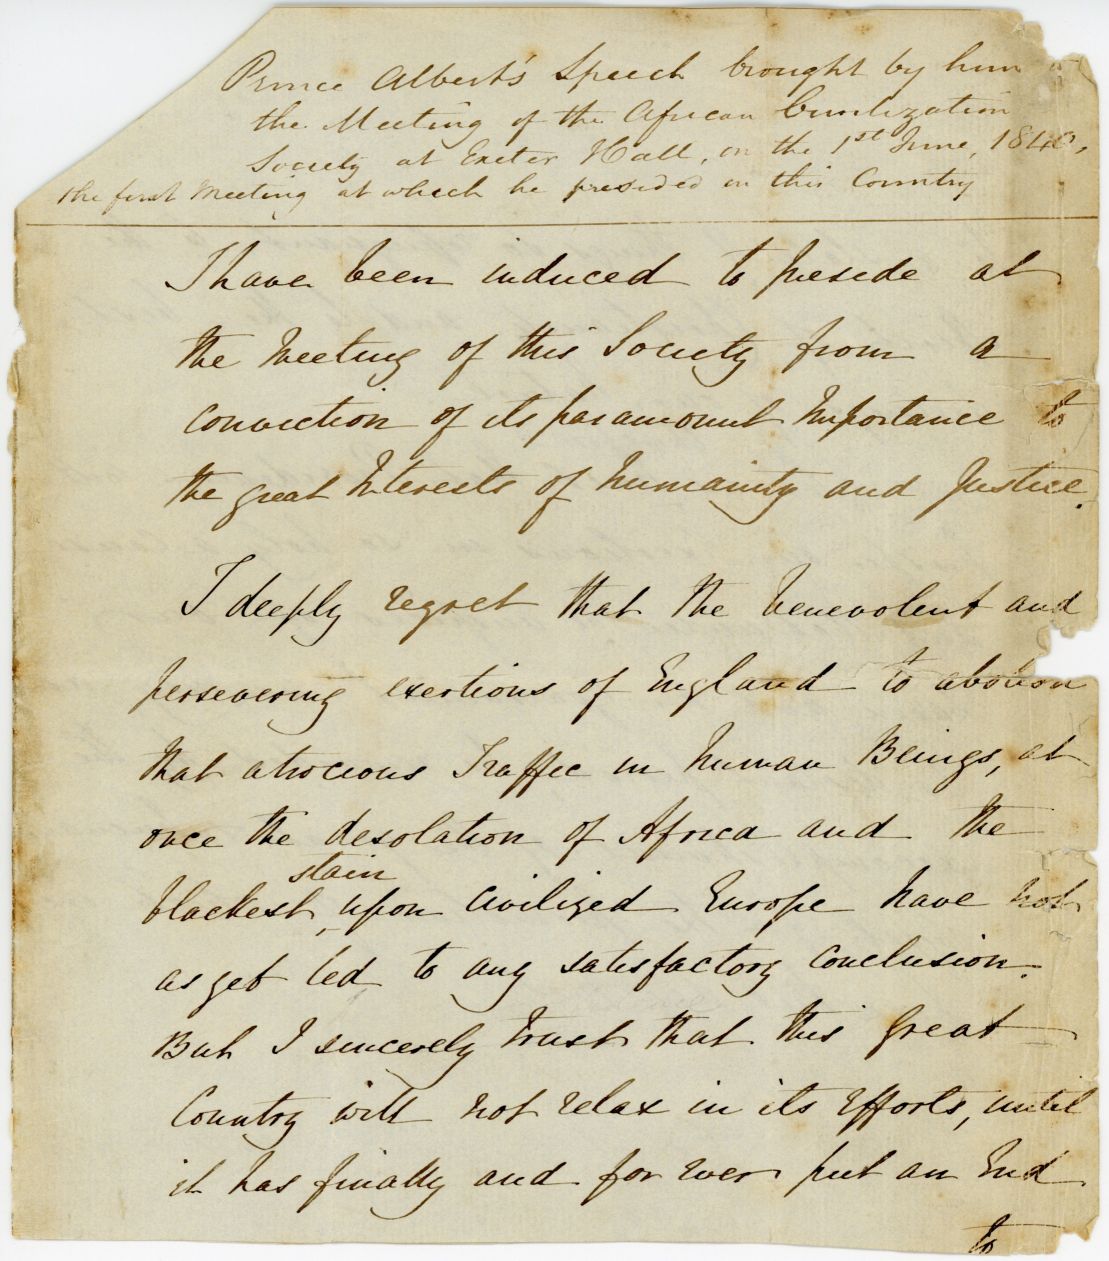 Prince Albert's Speech brought by him to
the Meeting of the African Civilization
Society at Exeter Hall, on the 1st June, 1840,
the first Meeting at which he presided in this Country
I have been induced to preside at
the Meeting of this Society from a
conviction of its paramount Importance to
the great Interests of humanity and Justice.
I deeply regret that the benevolent and
persevering exertions of England to abolish
that atrocious Traffic in human Beings, at
once the desolation of Africa and the
stain
blackest, upon Civilized Europe have not
as yet led to any satisfactory Conclusion.
But I sincerely trust that this Great
Country will not relax in its Efforts, until
it has finally and for ever put an End
to